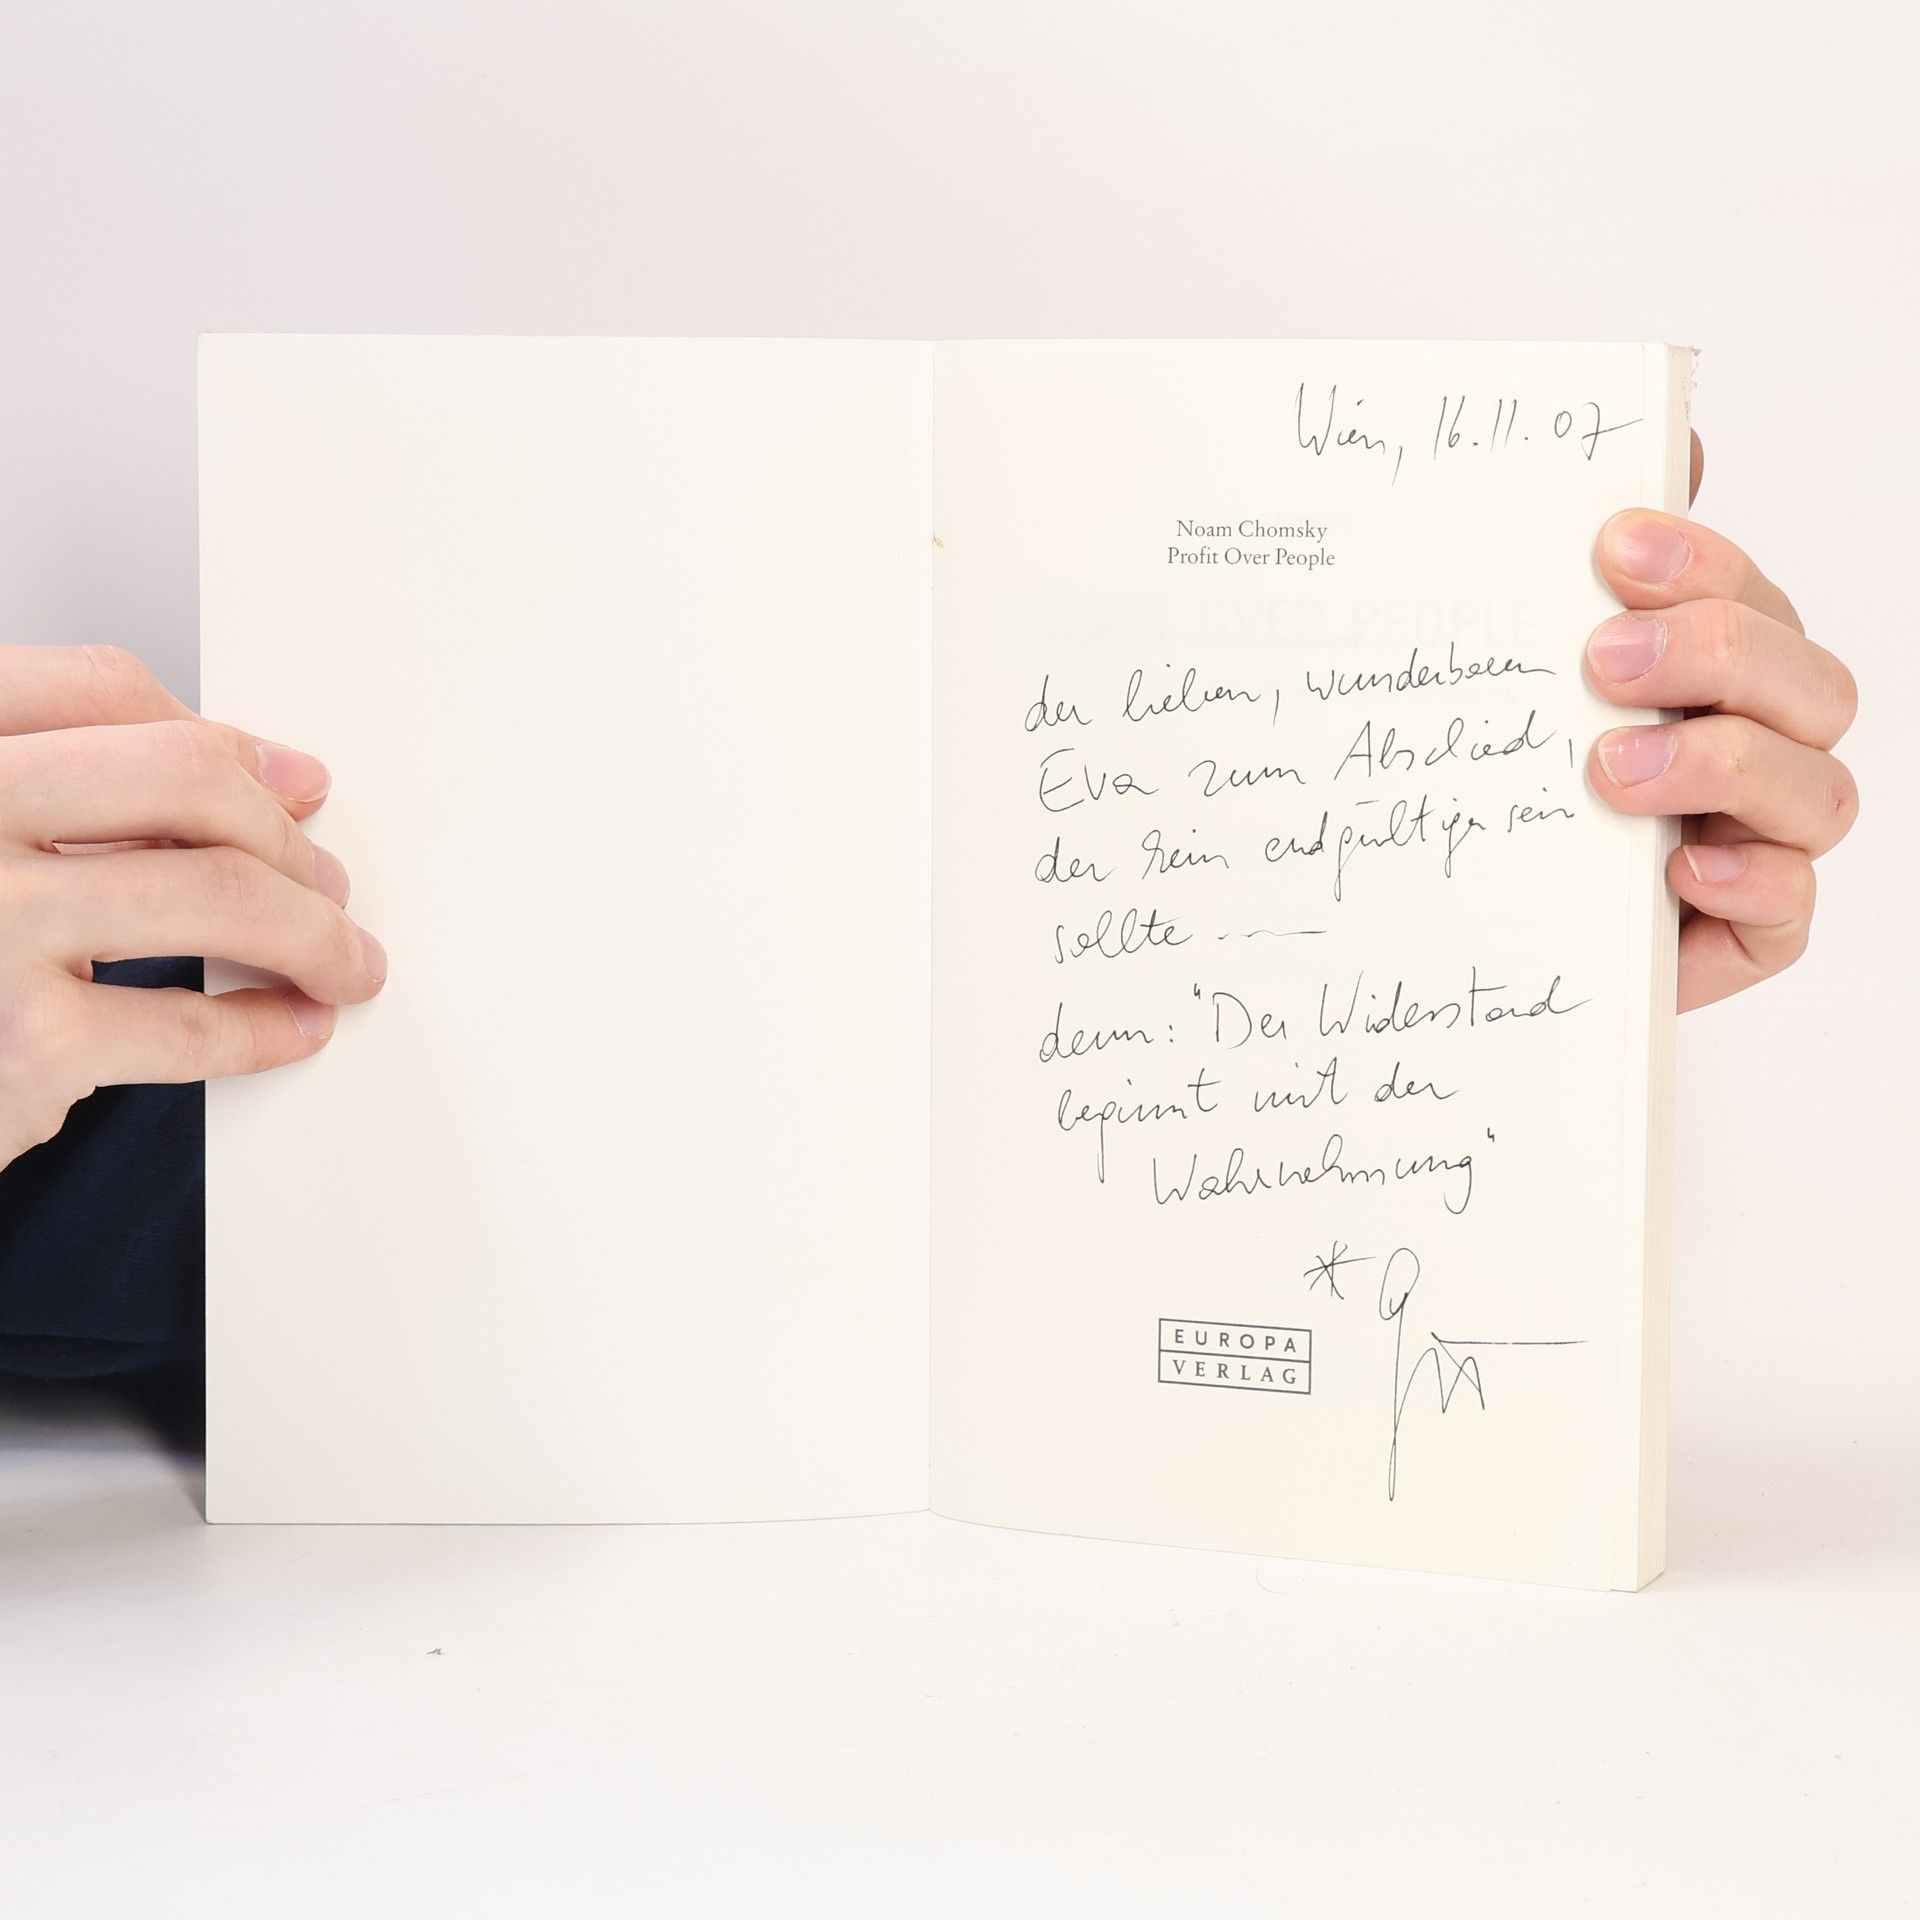 Wien, 16.11.07
Noam Chomsky
Profit Over People
der lieben, wunderbaren
Eva zum Abschied,
der kein endgültiger sein
sollte
denn: "Der Widerstand
beginnt mit der
Wahrnehmung"
*
EUROPA
VERLAG